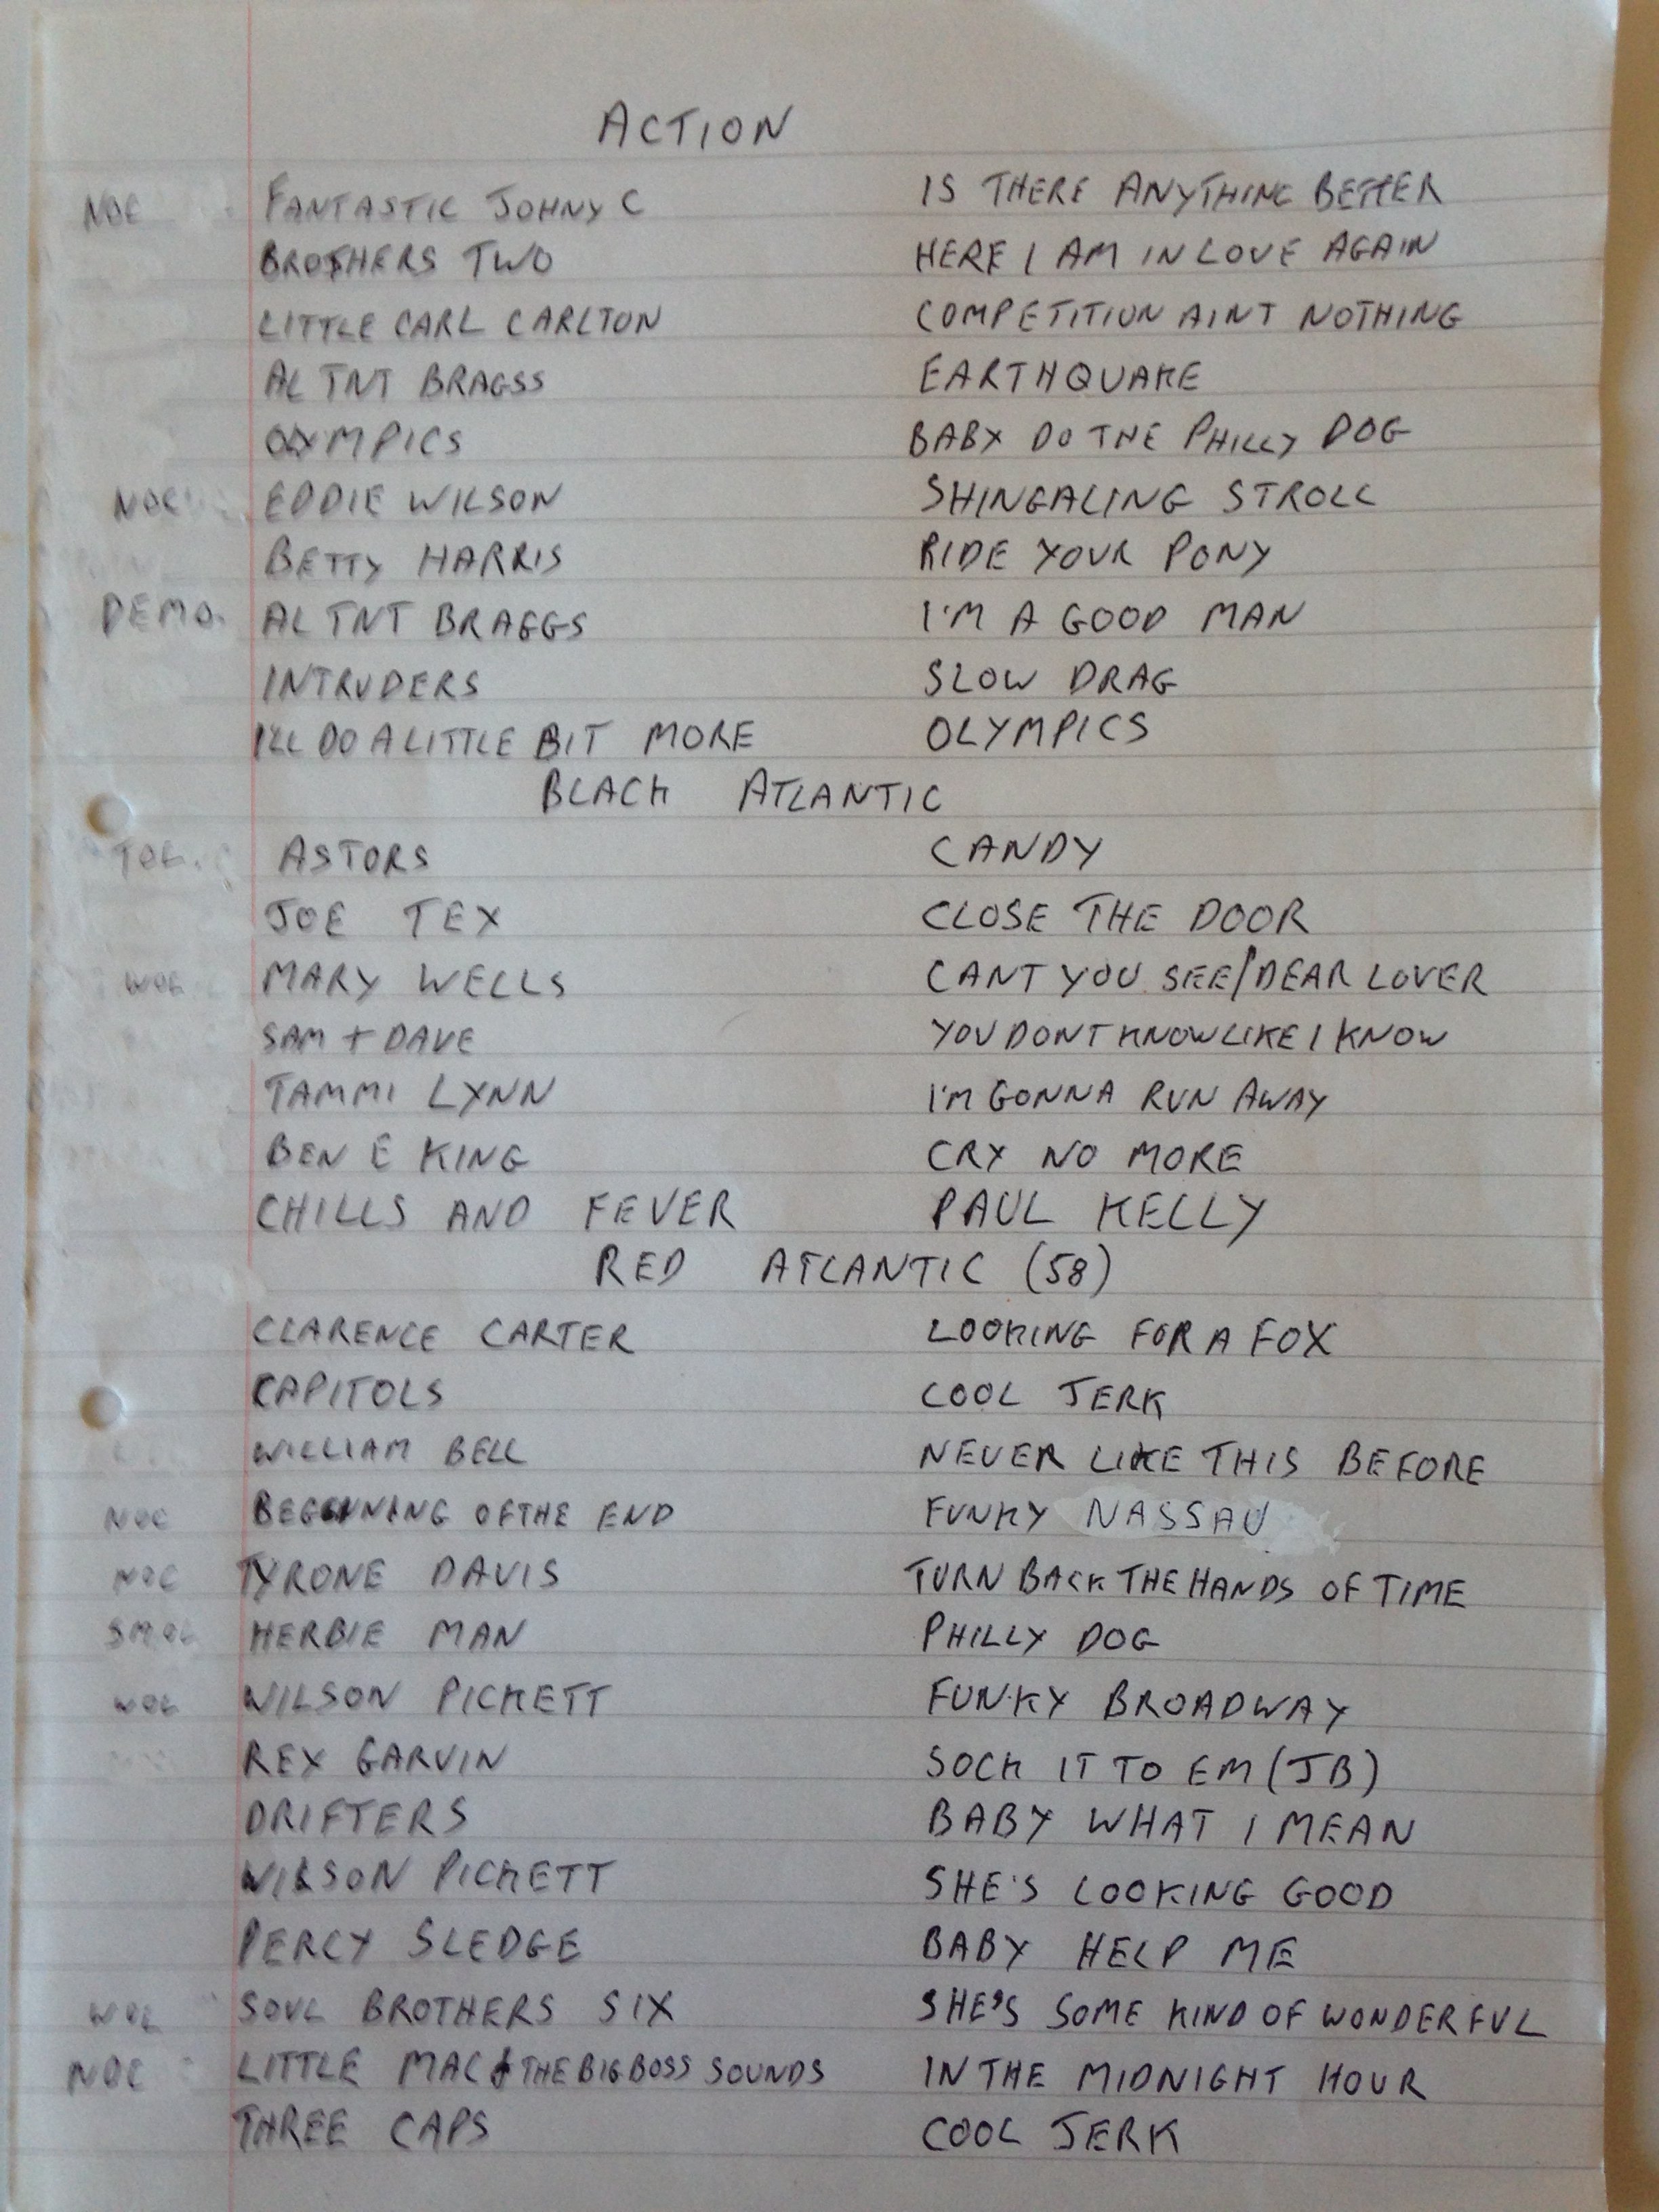 ACTION
NOC FANTASTIC JOHNY C IS THERE ANYTHING BETTER
BROTHERS TWO HERE I AM IN LOVE AGAIN
LITTLE CARL CARLTON COMPETITION AINT NOTHING
AL TNT BRAGSS EARTHQUAKE
OLYMPICS BABY DO THE PHILLY DOG
NOC EDDIE WILSON SHINGALING STROLL
BETTY HARRIS RIDE YOUR PONY
DEMO. AL TNT BRAGGS I'M A GOOD MAN
INTRUDERS SLOW DRAG
I'LL DO A LITTLE BIT MORE OLYMPICS
BLACK ATLANTIC
ASTORS CANDY
JOE TEX CLOSE THE DOOR
WOL MARY WELLS CANT YOU SEE/DEAR LOVER
SAM + DAVE YOU DONT KNOW LIKE I KNOW
TAMMI LYNN I'M GONNA RUN AWAY
BEN E KING CRY NO MORE
CHILLS AND FEVER PAUL KELLY
RED ATLANTIC (58)
CLARENCE CARTER LOOKING FOR A FOX
CAPITOLS COOL JERK
WILLIAM BELL NEVER LIKE THIS BEFORE
NOC BEGINNING OF THE END FUNKY NASSAU
NOC TYRONE DAVIS TURN BACK THE HANDS OF TIME
SMOL HERBIE MAN PHILLY DOG
WOL WILSON PICKETT FUNKY BROADWAY
REX GARVIN SOCK IT TO EM (JB)
DRIFTERS BABY WHAT I MEAN
WILSON PICKETT SHE'S LOOKING GOOD
PERCY SLEDGE BABY HELP ME
WOL SOUL BROTHERS SIX SHE'S SOME KIND OF WONDERFUL
NOC LITTLE MAC & THE BIG BOSS SOUNDS IN THE MIDNIGHT HOUR
THREE CAPS COOL JERK